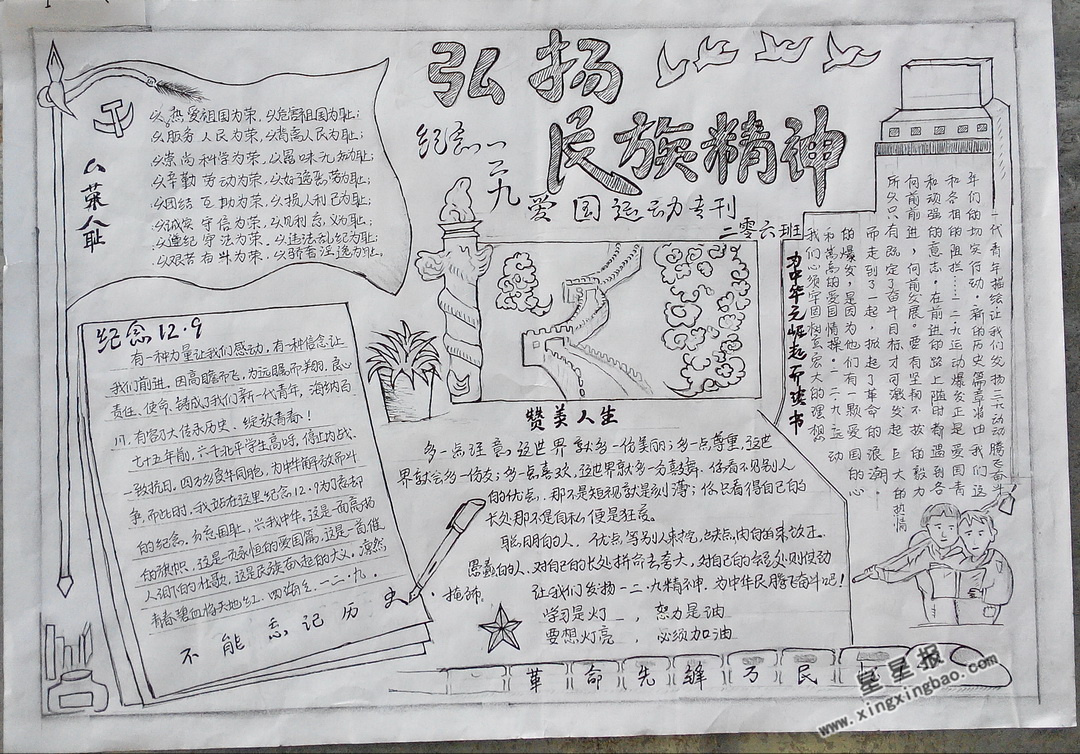 弘扬
民族精神
纪念一二九
爱国运动专刊
二零六班
八荣八耻
以热爱祖国为荣,以危害祖国为耻;
以服务人民为荣,以背离人民为耻;
以崇尚科学为荣,以愚昧无知为耻;
以辛勤劳动为荣,以好逸恶劳为耻;
以团结互助为荣,以损人利己为耻;
以诚实守信为荣,以见利忘义为耻;
以遵纪守法为荣,以违法乱纪为耻;
以艰苦奋斗为荣,以骄奢淫逸为耻。
纪念12·9
有一种力量让我们感动,有一种信念让
我们前进,因高瞻而飞,为远瞩而翔,良心
责任、使命,铸成了我们新一代青年,海纳百
川,有容乃大传承历史、绽放青春!
七十五年前,六千北平学生高呼,停止内战、
一致抗日,四万万受难同胞,为中华解放而斗
争,而此时,我站在这里纪念12.9为了忘却
的纪念,勿忘国耻,兴我中华。这是一面高扬
的旗帜,这是一页永恒的爱国篇,这是一首催
人泪下的壮歌,这是民族奋起的大义,凛然
青春碧血
四海
一二·九.
不能忘记历史
赞美人生
多一点注意,这世界就多一份美丽;多一点尊重,这世
界就会多一份友;多一点喜欢,这世界就多一分
你看不见别人
的优点,那不是短视就是刻薄;你只看得自己的
长处那不是自私便是狂妄。
聪明的人,优点等别人来挖,缺点
愚蠢的人,对自己的长处拼命去夸大,对自己的
让我们发扬一二·九精神,为中华民腾飞奋斗吧!
学习是灯,努力是油
要想灯亮,必须加油
为中华之崛起而读书
一代青年描绘让我们发扬
年们的切实行动.新的历史篇章将由我们这
和各相的阻拦…一二九运动爆发正是爱国青
和顽强的意志.在前进的路上随时都遇到各
向前前进,向前发展。要有坚韧不拔的毅力
所以只有既定了奋斗目标才可激发起巨大的热情
而走到了一起,掀起了革命的浪潮.
的爆发,是因为他们有一颗爱国的心
和崇高的爱国情操.一二九运动
我们必须牢固树立宏大的理想
革命先锋
民
星星报
www.xingxingbao.com